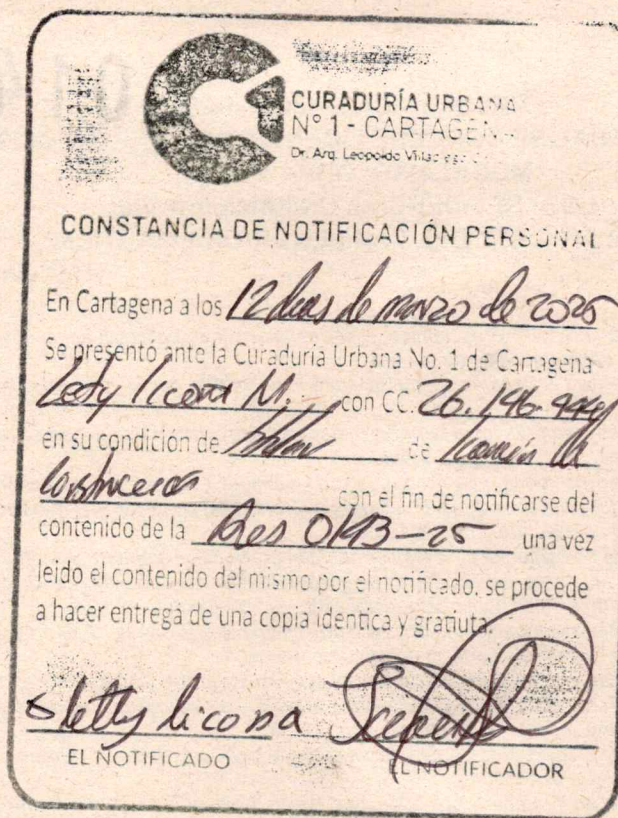 CURADURÍA URBANA
N° 1 - CARTAGENA
Dr. Arq. Leopoldo
CONSTANCIA DE NOTIFICACIÓN PERSONAL
En Cartagena a los 12 dias de marzo de 2025
Se presentó ante la Curaduría Urbana No. 1 de Cartagena
licona M. con CC. 26.146.444
en su condición de titular de licencia de
construccion con el fin de notificarse del
contenido de la Res 0143-25 una vez
leido el contenido del mismo por el notificado, se procede
a hacer entrega de una copia identica y gratiuta.
letty licona
EL NOTIFICADO
EL NOTIFICADOR